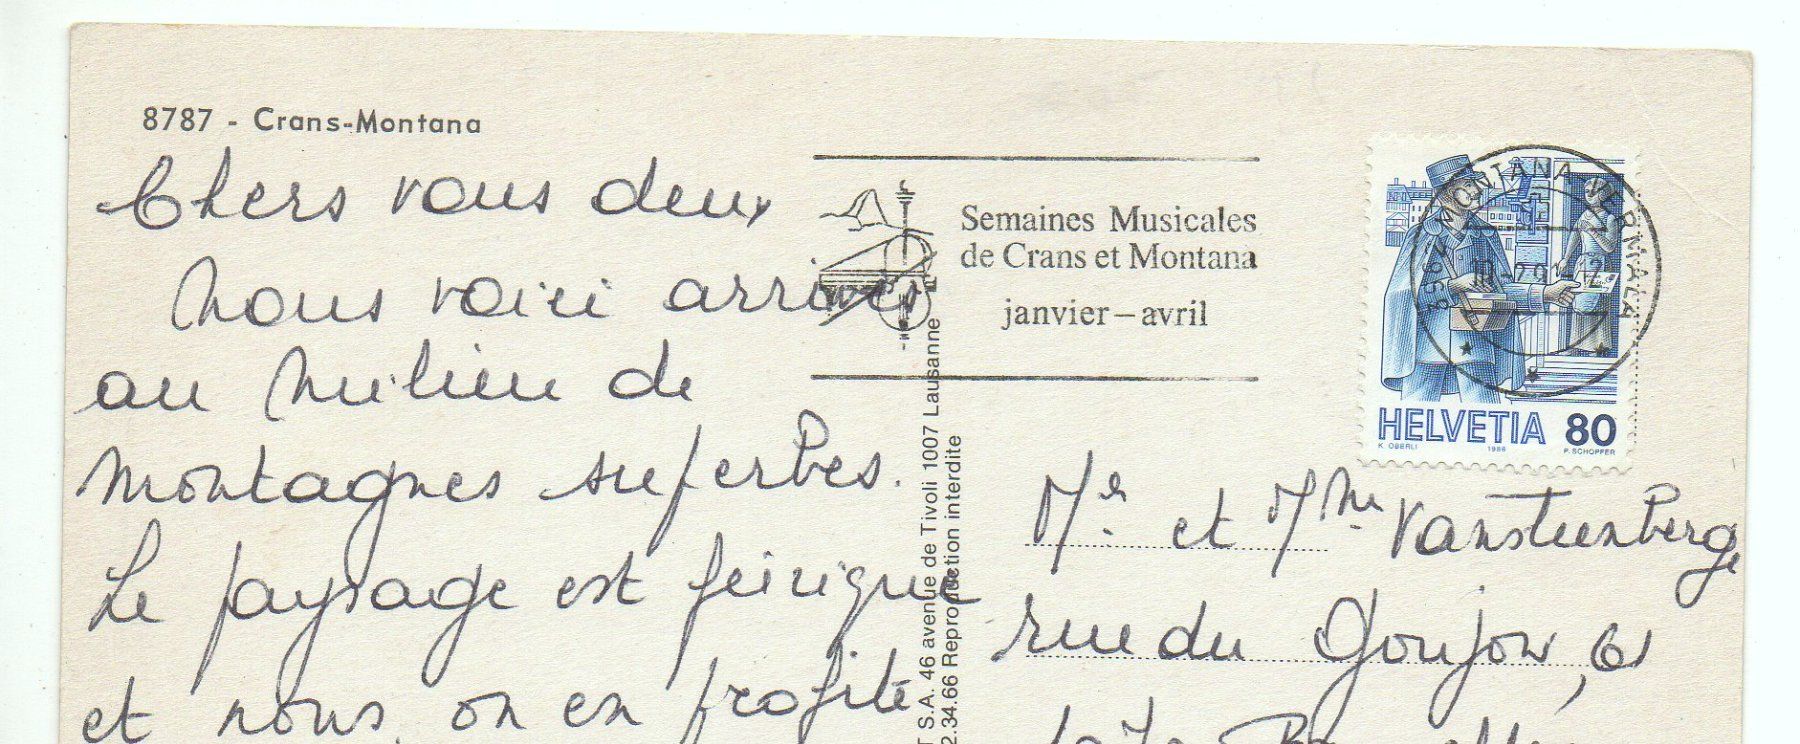 8787 - Crans-Montana
Chers vous deux
Nous voici arrivés
au milieu de
montagnes superbes.
Le paysage est féérique
et nous, on en profite
Semaines Musicales
de Crans et Montana
janvier – avril
T S.A. 46 avenue de Tivoli 1007 Lausanne
2.34.66 Reproduction interdite
3962 MONTANA-VERMALA
HELVETIA 80
K. OBERLI 1986 P. SCHOPFER
Mr et Mme Vansteenberge
rue du Goujon, 61